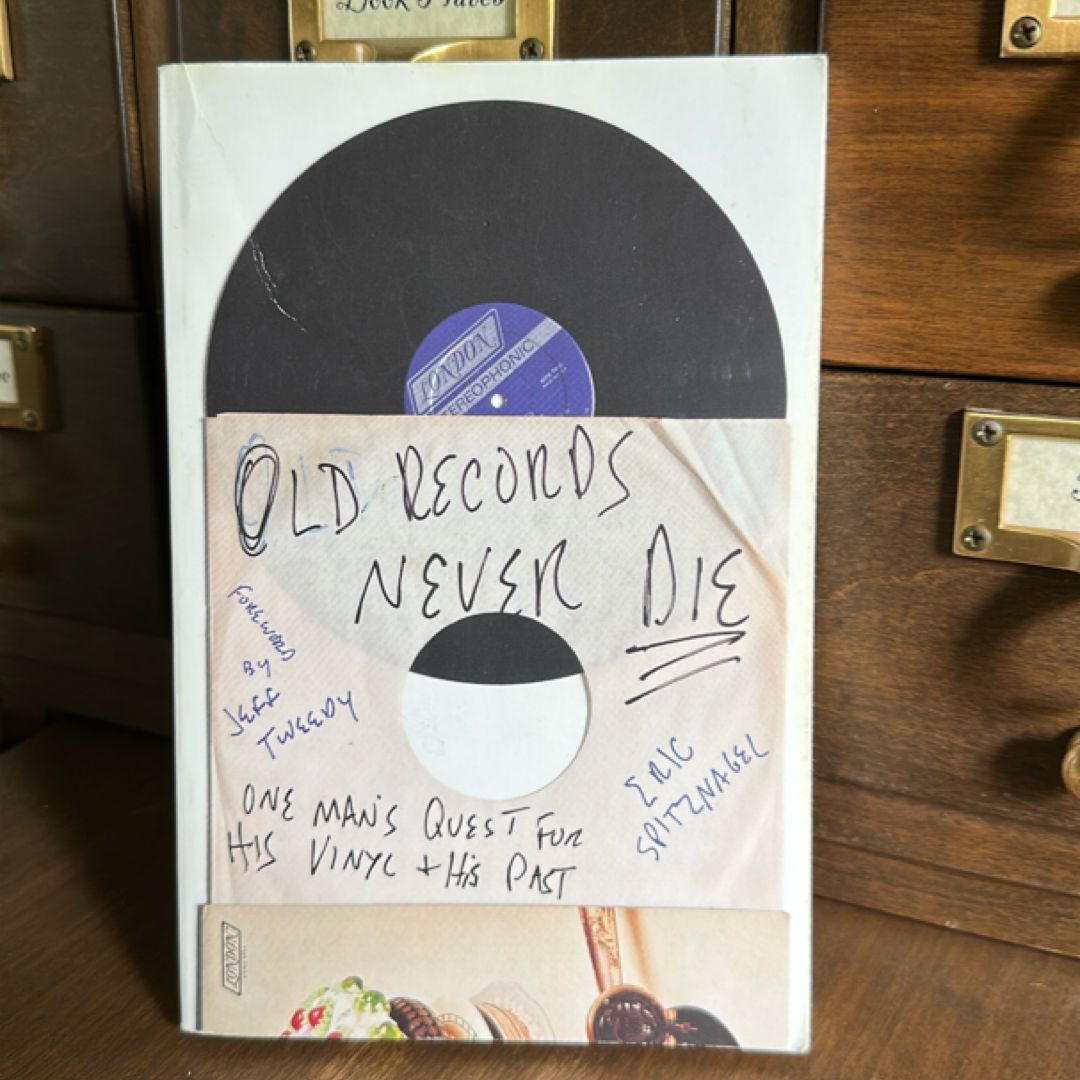 Book Plates
LONDON
STEREOPHONIC
OLD RECORDS
NEVER DIE
FOREWORD
BY
JEFF
TWEEDY
ERIC
SPITZNAGEL
ONE MAN'S QUEST FOR
HIS VINYL + HIS PAST
LONDON